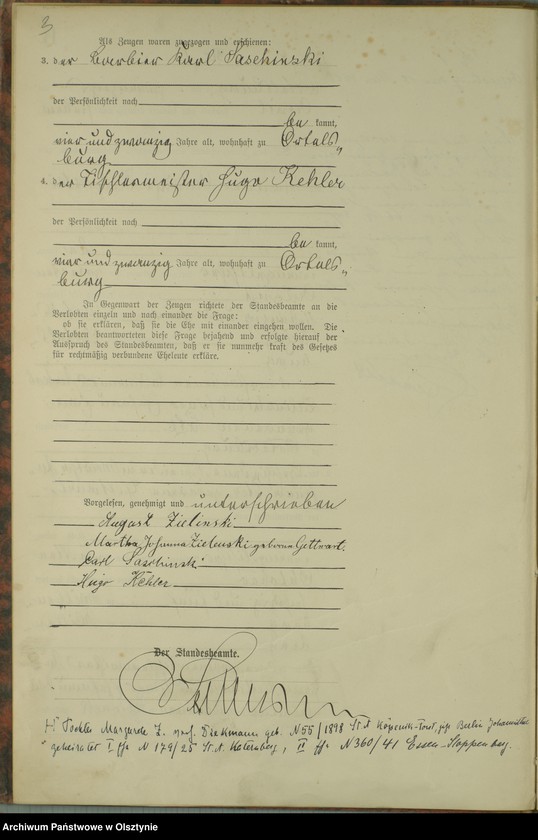 3
Als Zeugen waren zugezogen und erschienen:
3. der Barbier Karl Saschinski
der Persönlichkeit nach
be kannt,
vier und zwanzig Jahre alt, wohnhaft zu Ortels„
burg
4. der Tischlermeister Hugo Kehler
der Persönlichkeit nach
be kannt,
vier und zwanzig Jahre alt, wohnhaft zu Ortels„
burg
In Gegenwart der Zeugen richtete der Standesbeamte an die
Verlobten einzeln und nach einander die Frage:
ob sie erklären, daß sie die Ehe mit einander eingehen wollen. Die
Verlobten beantworteten diese Frage bejahend und erfolgte hierauf der
Ausspruch des Standesbeamten, daß er sie nunmehr kraft des Gesetzes
für rechtmäßig verbundene Eheleute erkläre.
Vorgelesen, genehmigt und unterschrieben
August Zielinski
Martha Johanna Zielenski geborene Gettwart.
Carl Saschinski
Hugo Kehler
Der Standesbeamte.
Tochter Margarete Z. geb. N 55/1898 St. A Köpenik-Forst, Berlin
geheiratet I N 179/25 St. A. Katernberg, II N 360/41 Essen-Stoppenberg.
Archiwum Państwowe w Olsztynie